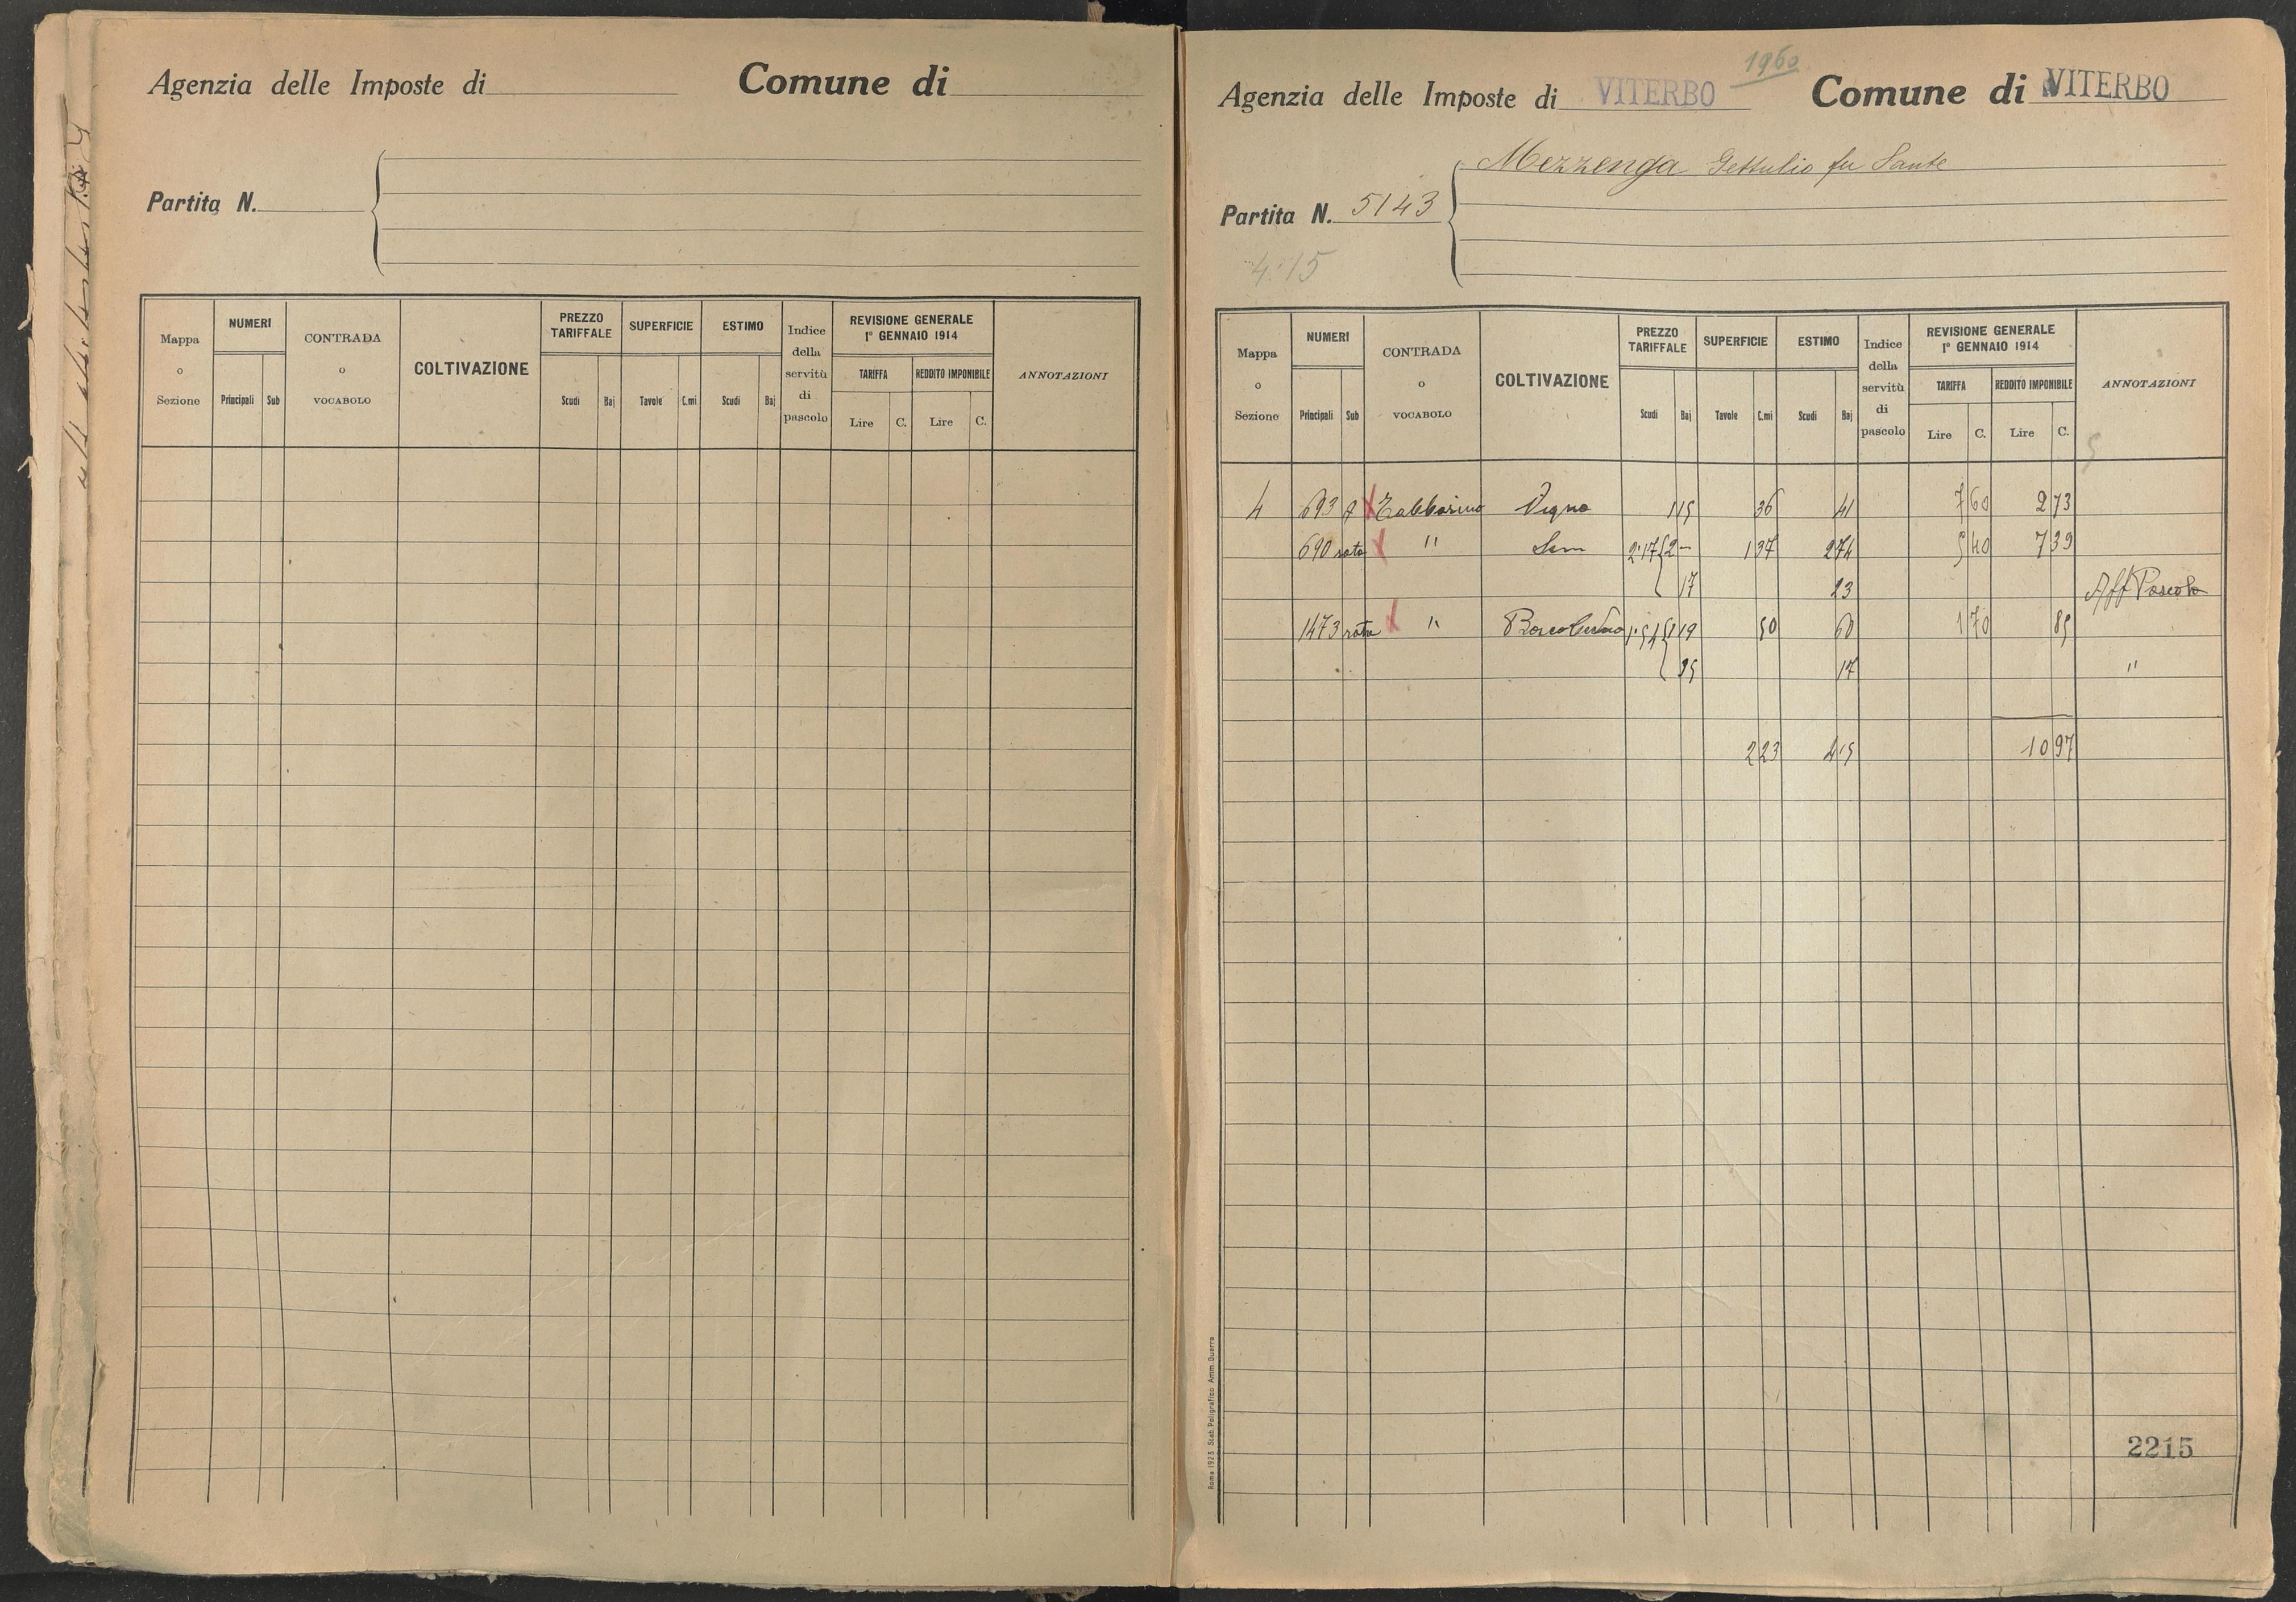 Agenzia delle Imposte di
Comune di
Partita N.
Mappa o Sezione
NUMERI
Principali Sub
CONTRADA o VOCABOLO
COLTIVAZIONE
PREZZO TARIFFALE
Scudi Baj
SUPERFICIE
Tavole C.mi
ESTIMO
Scudi Baj
Indice della servitù di pascolo
REVISIONE GENERALE
1° GENNAIO 1914
TARIFFA
Lire C.
REDDITO IMPONIBILE
Lire C.
ANNOTAZIONI
1960
Agenzia delle Imposte di VITERBO
Comune di VITERBO
Mezzenga Gettulio fu Sante
Partita N. 5143
4.15
Mappa o Sezione
NUMERI
Principali Sub
CONTRADA o VOCABOLO
COLTIVAZIONE
PREZZO TARIFFALE
Scudi Baj
SUPERFICIE
Tavole C.mi
ESTIMO
Scudi Baj
Indice della servitù di pascolo
REVISIONE GENERALE
1° GENNAIO 1914
TARIFFA
Lire C.
REDDITO IMPONIBILE
Lire C.
ANNOTAZIONI
4 693 A X Vigna 1 15 36 41 7 60 2 73
690 rata X " Sem 2.17 { 2 - 1 37 2 74 5 40 7 39
17 23 Aff Pascolo
1473 rata X " 1.54 { 1 19 50 60 1 70 85
35 17 "
2 23 4 15 10 97
2215
Roma 1923 Stab. Poligrafico Amm. Guerra